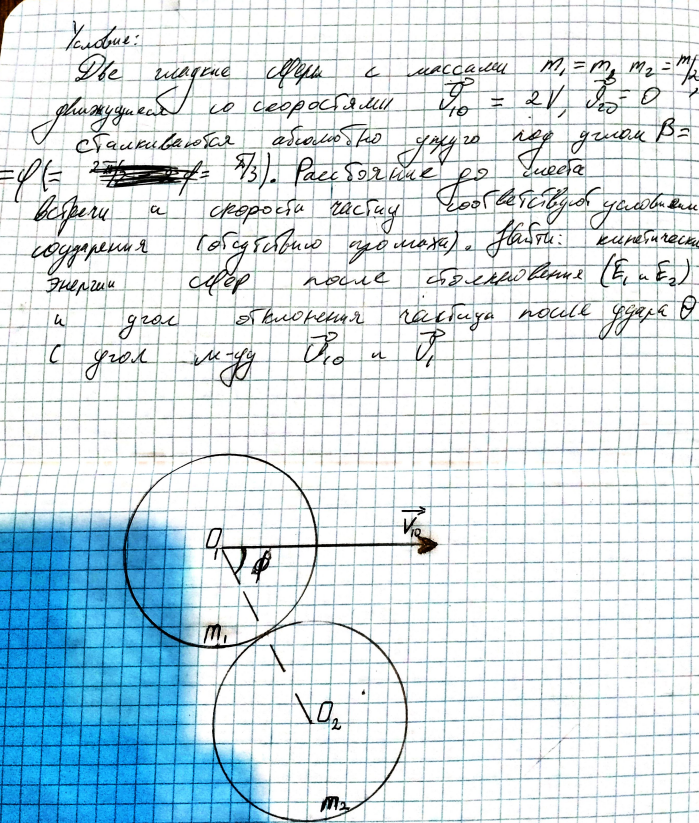 Условие:
Две гладкие сферы с массами m₁ = m, m₂ = m/2,
движущиеся со скоростями v⃗₁₀ = 2V, v⃗₂₀ = 0
сталкиваются абсолютно упруго под углом β =
= φ (= π/3). Расстояние до места
встречи и скорости частиц соответствуют условиям
соударения (отсутствию промаха). Найти: кинетические
энергии сфер после столкновения (E₁ и E₂)
и угол отклонения частицы после удара θ
( угол м-ду v⃗₁₀ и v⃗₁
V⃗₁₀
O₁
φ
m₁
O₂
m₂